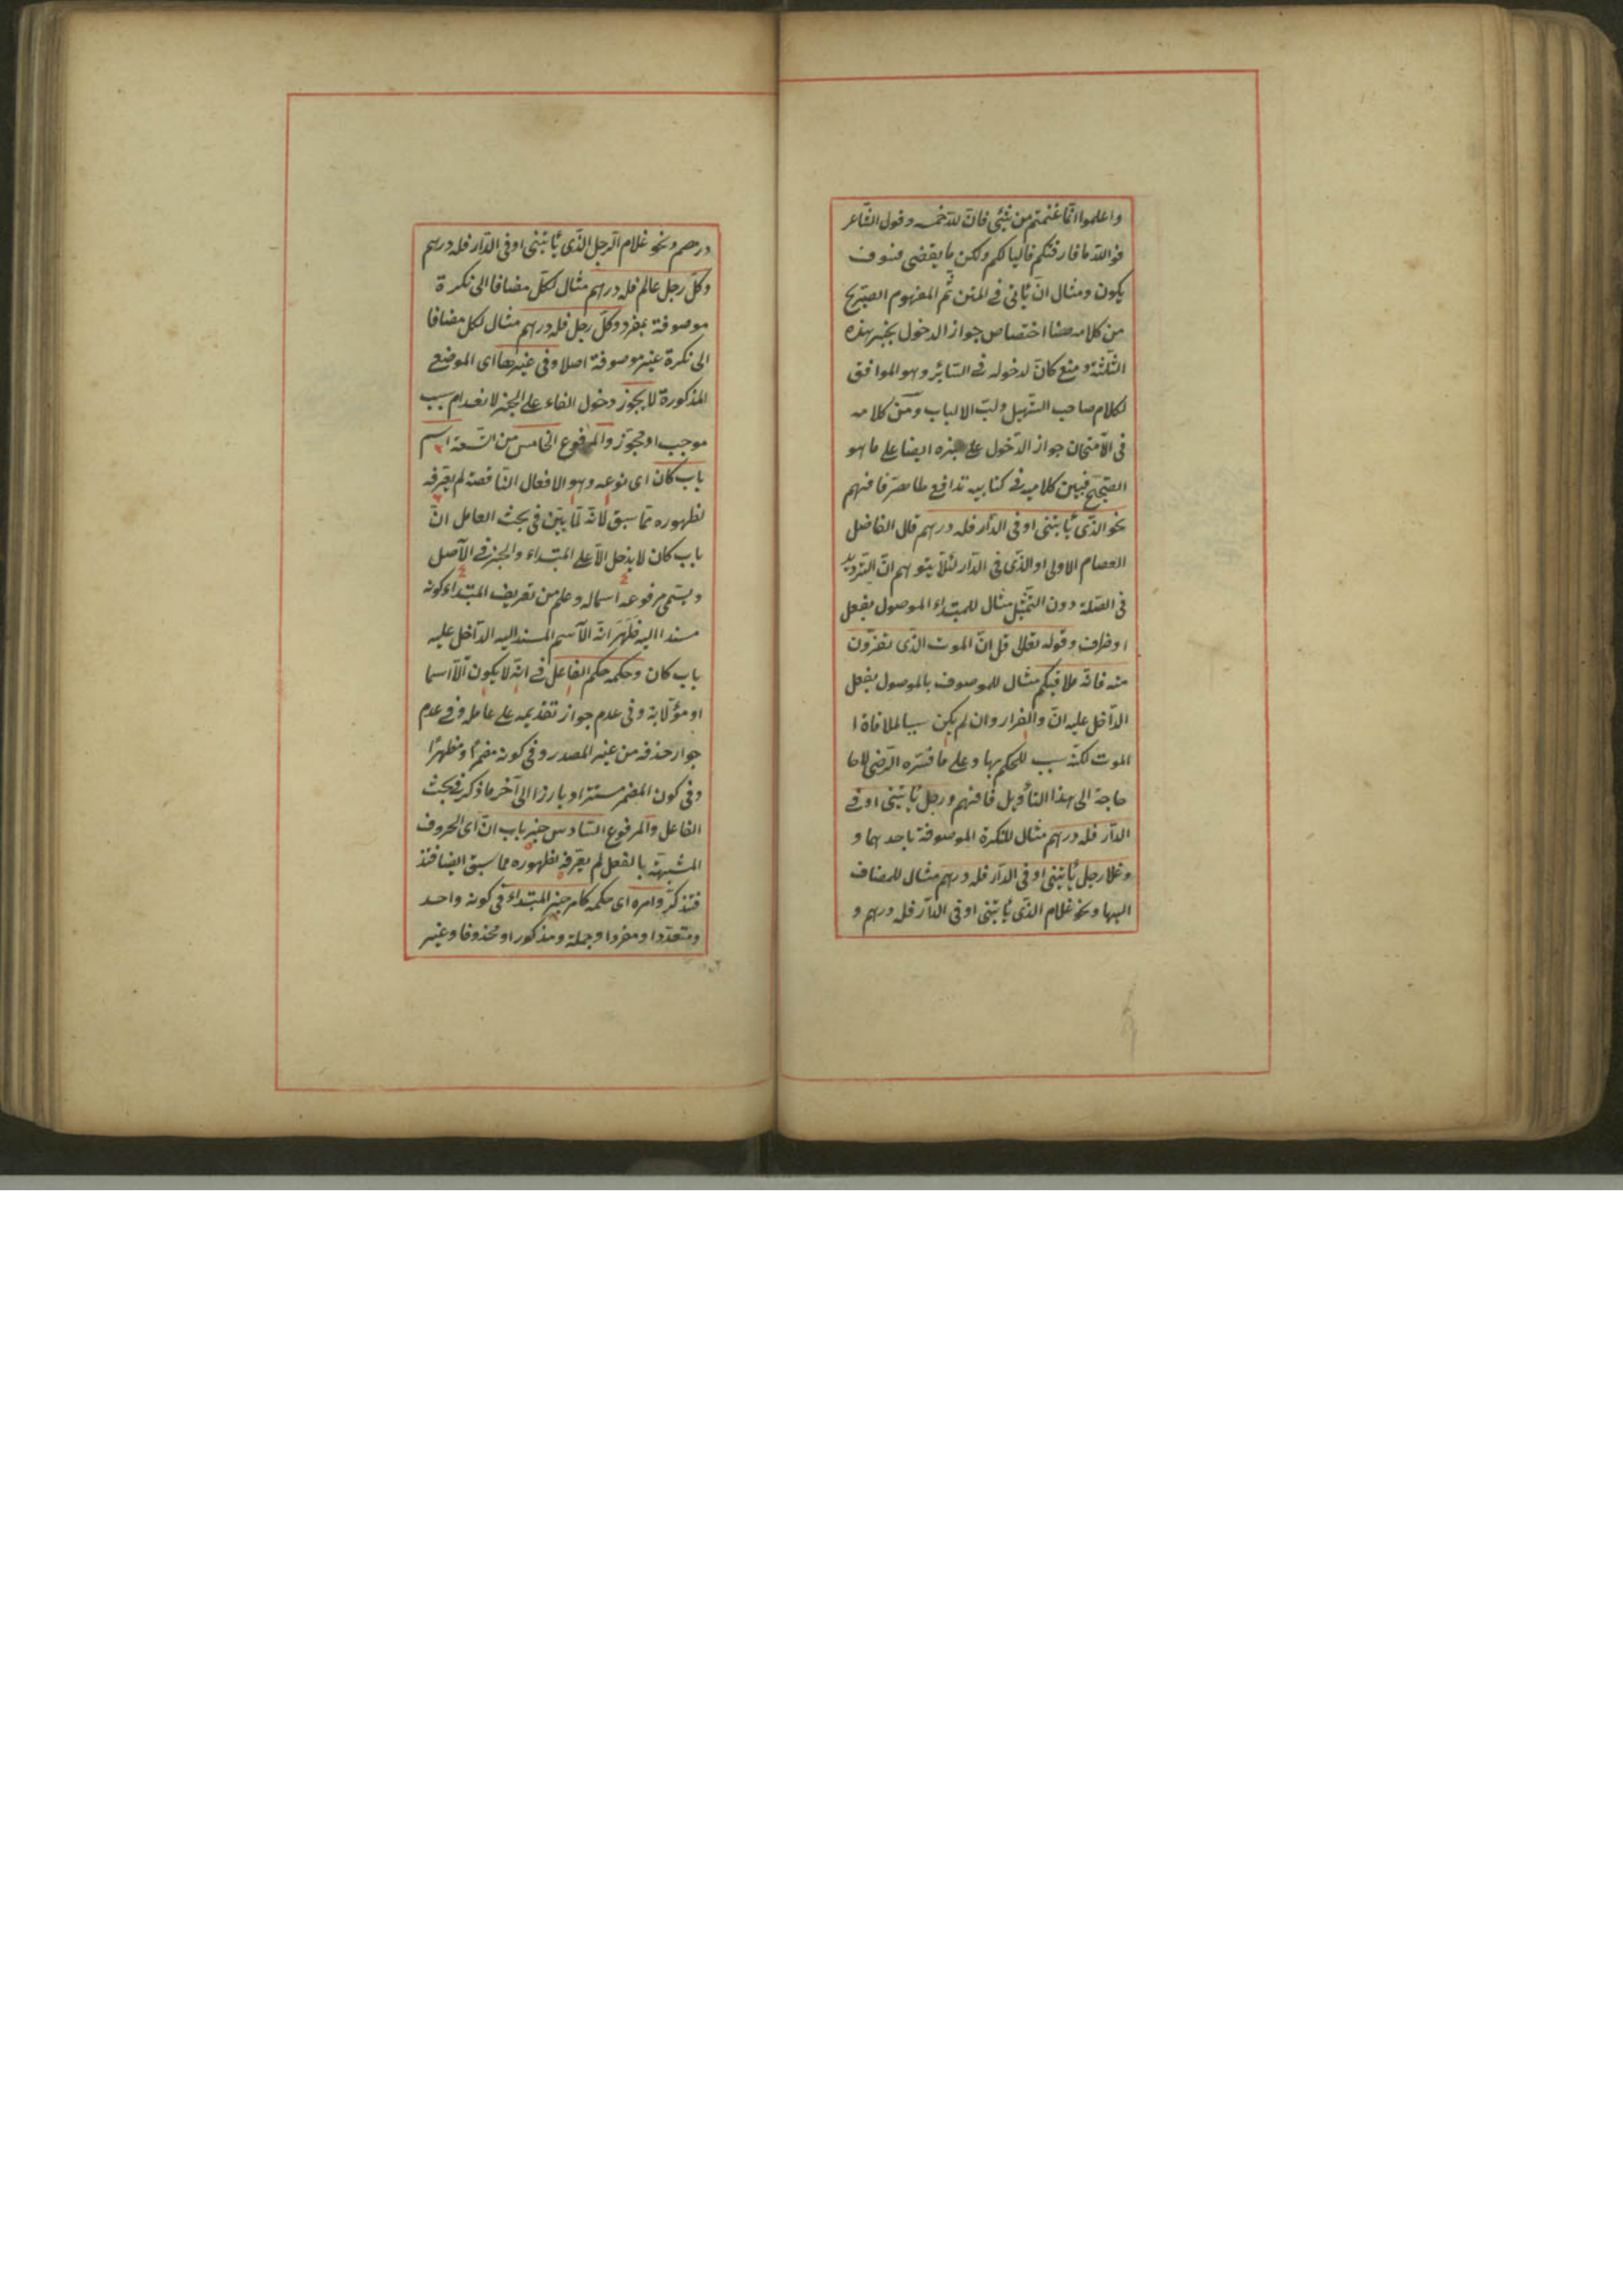 واعلموا انما غنمتم من شئ فان لله خمسه وقول الشاعر
فوالله ما فارقتكم قاليا لكم ولكن ما يقضى فسوف
يكون ومثال ان ياتى فى المتن ثم المفهوم الصريح
من كلامه هنا اختصاص جواز الدخول بخبر بهذه
الثلثة ومنع كان لدخوله فى السائر وهو الموافق
لكلام صاحب التسهيل ولب الالباب ومن كلامه
فى الامتحان جواز الدخول على خبره ايضا على ما هو
الصحيح فبين كلاميه فى كتابيه تدافع ظاهر فافهم
نحو الذى يأتينى او فى الدار فله درهم قال الفاضل
العصام الاولى او الذى فى الدار لئلا يتوهم ان الترديد
فى الصلة دون التمثيل مثال للمبتداء الموصول بفعل
او ظرف وقوله تعالى قل ان الموت الذى تفرون
منه فانه ملاقيكم مثال للموصوف بالموصول بفعل
الداخل عليه ان والفرار وان لم يكن سببا لملاقاة ا
الموت لكنه سبب للحكم بها وعلى ما فسره الرضى لاحا
حاجة الى هذا التأويل فافهم ورجل يأتينى او فى
الدار فله درهم مثال للنكرة الموصوفة باحدهما و
وغلا رجل يأتينى او فى الدار فله درهم مثال للمضاف
اليها ونحو غلام الذى يأتينى او فى الدار فله درهم و
درهم ونحو غلام الرجل الذى يأتينى او فى الدار فله درهم
وكل رجل عالم فله درهم مثال لكل مضافا الى نكرة
موصوفة بمفرد وكل رجل فله درهم مثال لكل مضافا
الى نكرة غير موصوفة اصلا وفى غيرها اى الموضع
المذكورة لا يجوز دخول الفاء على الخبر لانعدام سبب
موجب او مجوز والمرفوع الخامس من التسعة اسم
باب كان اى نوعه وهو الافعال الناقصة لم يعرفه
لظهوره مما سبق لانه لما بين فى بحث العامل ان
باب كان لا يدخل الا على المبتداء والخبر فى الاصل
ويسمى مرفوعه اسما له وعلم من تعريف المبتداء كونه
مسندا اليه فظهر انه الاسم المسند اليه الداخل عليه
باب كان وحكمه حكم الفاعل فى انه لا يكون الا اسما
او مؤلا به وفى عدم جواز تقديمه على عامله وفى عدم
جواز حذفه من غير المصدر وفى كونه مضمرا ومظهرا
وفى كون المضمر مستترا وبارزا الى آخر ما ذكر فى بحث
الفاعل والمرفوع السادس خبر باب ان اى الحروف
المشبهة بالفعل لم يعرفه لظهوره مما سبق ايضا فتذ
فتذكر وامره اى حكمه كامر خبر المبتداء فى كونه واحد
ومتعددا ومفردا وجملة ومذكورا ومحذوفا وغير